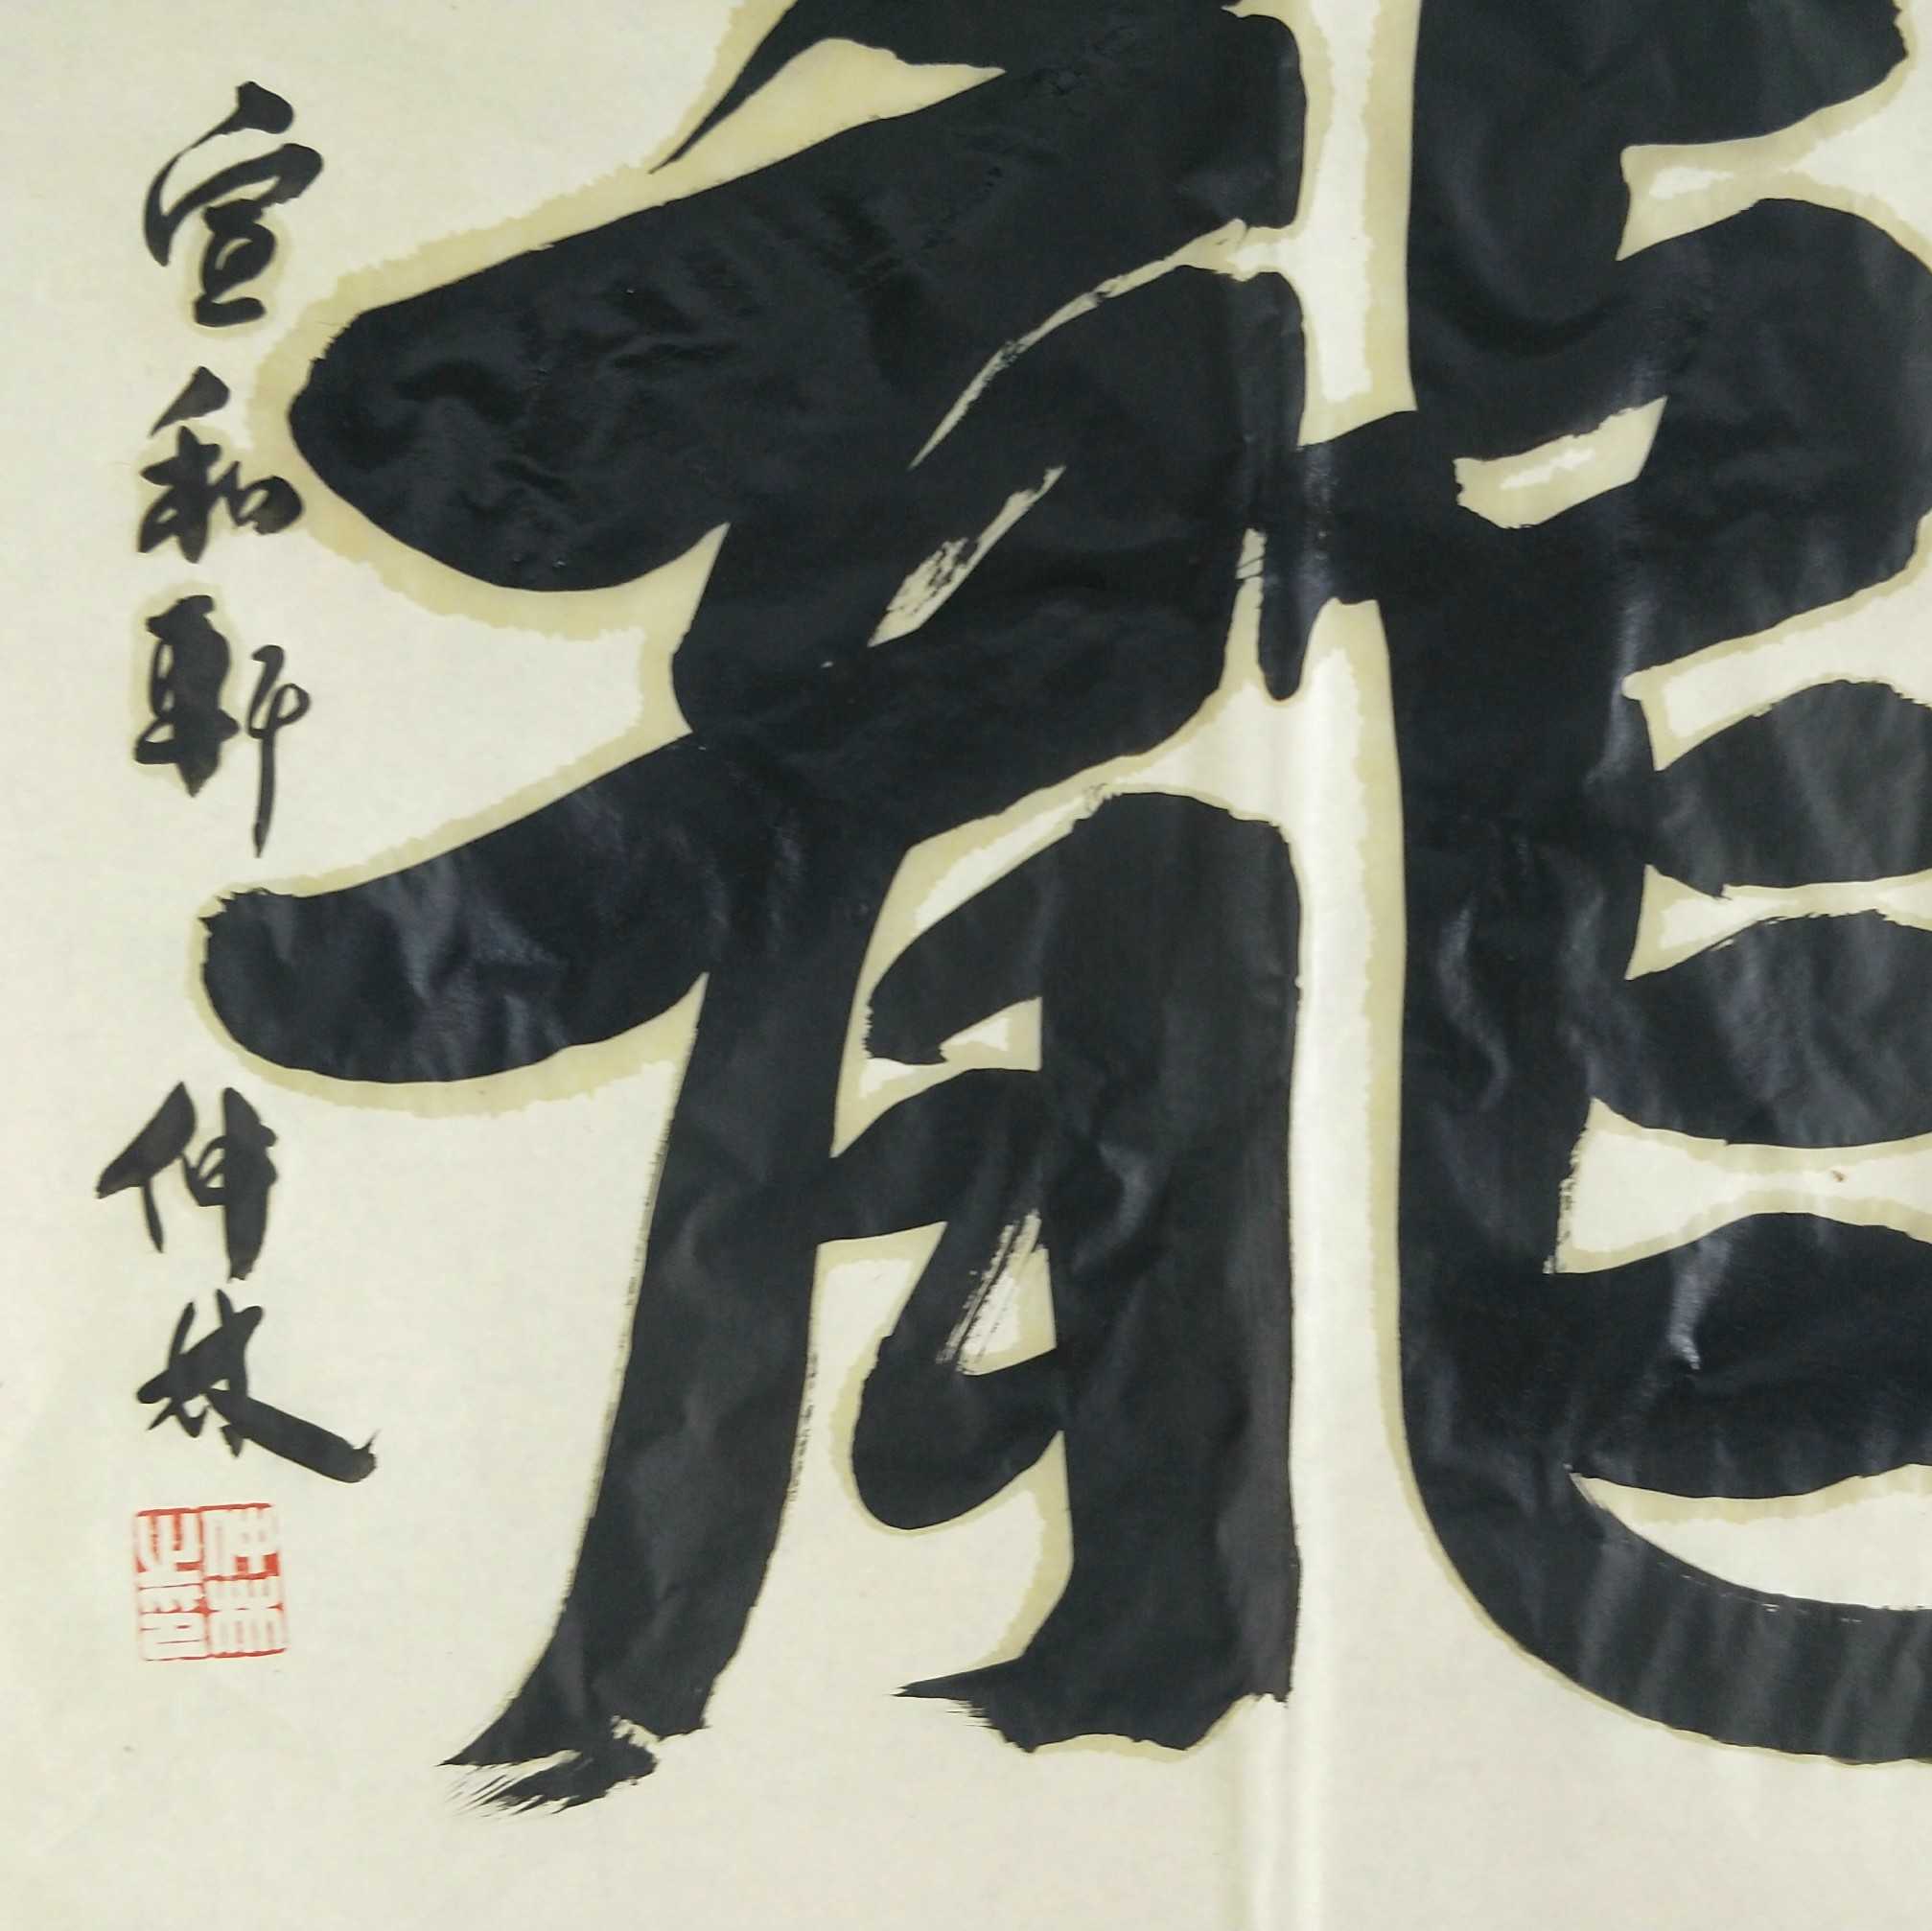 龍
宣和軒 仲林